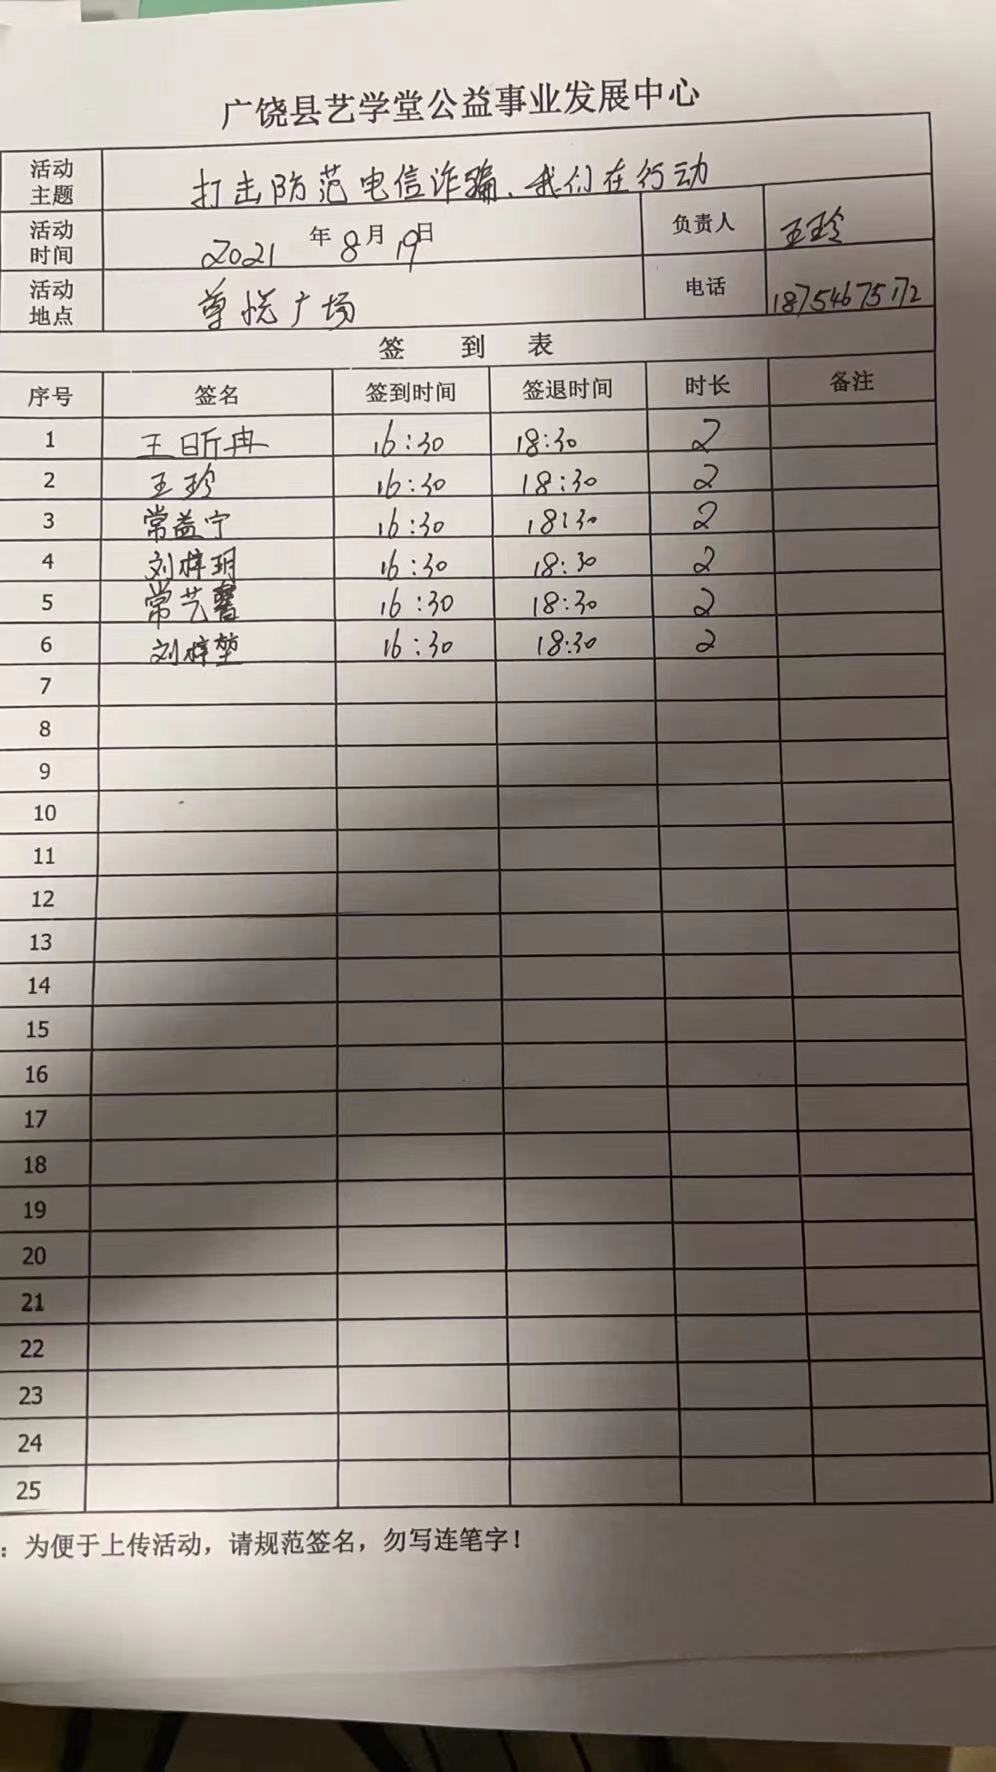 广饶县艺学堂公益事业发展中心
活动主题 打击防范电信诈骗、我们在行动
活动时间 2021 年 8 月 19 日 负责人 王珍
活动地点 尊悦广场 电话 18754675172
签 到 表
序号 签名 签到时间 签退时间 时长 备注
1 王昕冉 16:30 18:30 2
2 王珍 16:30 18:30 2
3 常益宁 16:30 18:30 2
4 刘梓玥 16:30 18:30 2
5 常艺馨 16:30 18:30 2
6 刘梓堃 16:30 18:30 2
7
8
9
10
11
12
13
14
15
16
17
18
19
20
21
22
23
24
25
：为便于上传活动，请规范签名，勿写连笔字！